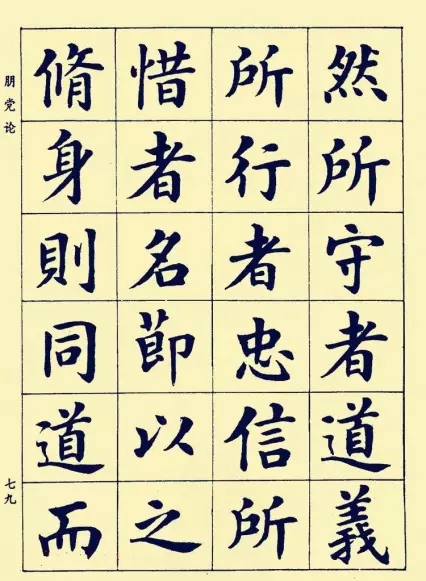 然所守者道義
所行者忠信所
惜者名節以之
脩身則同道而
朋党论
七九